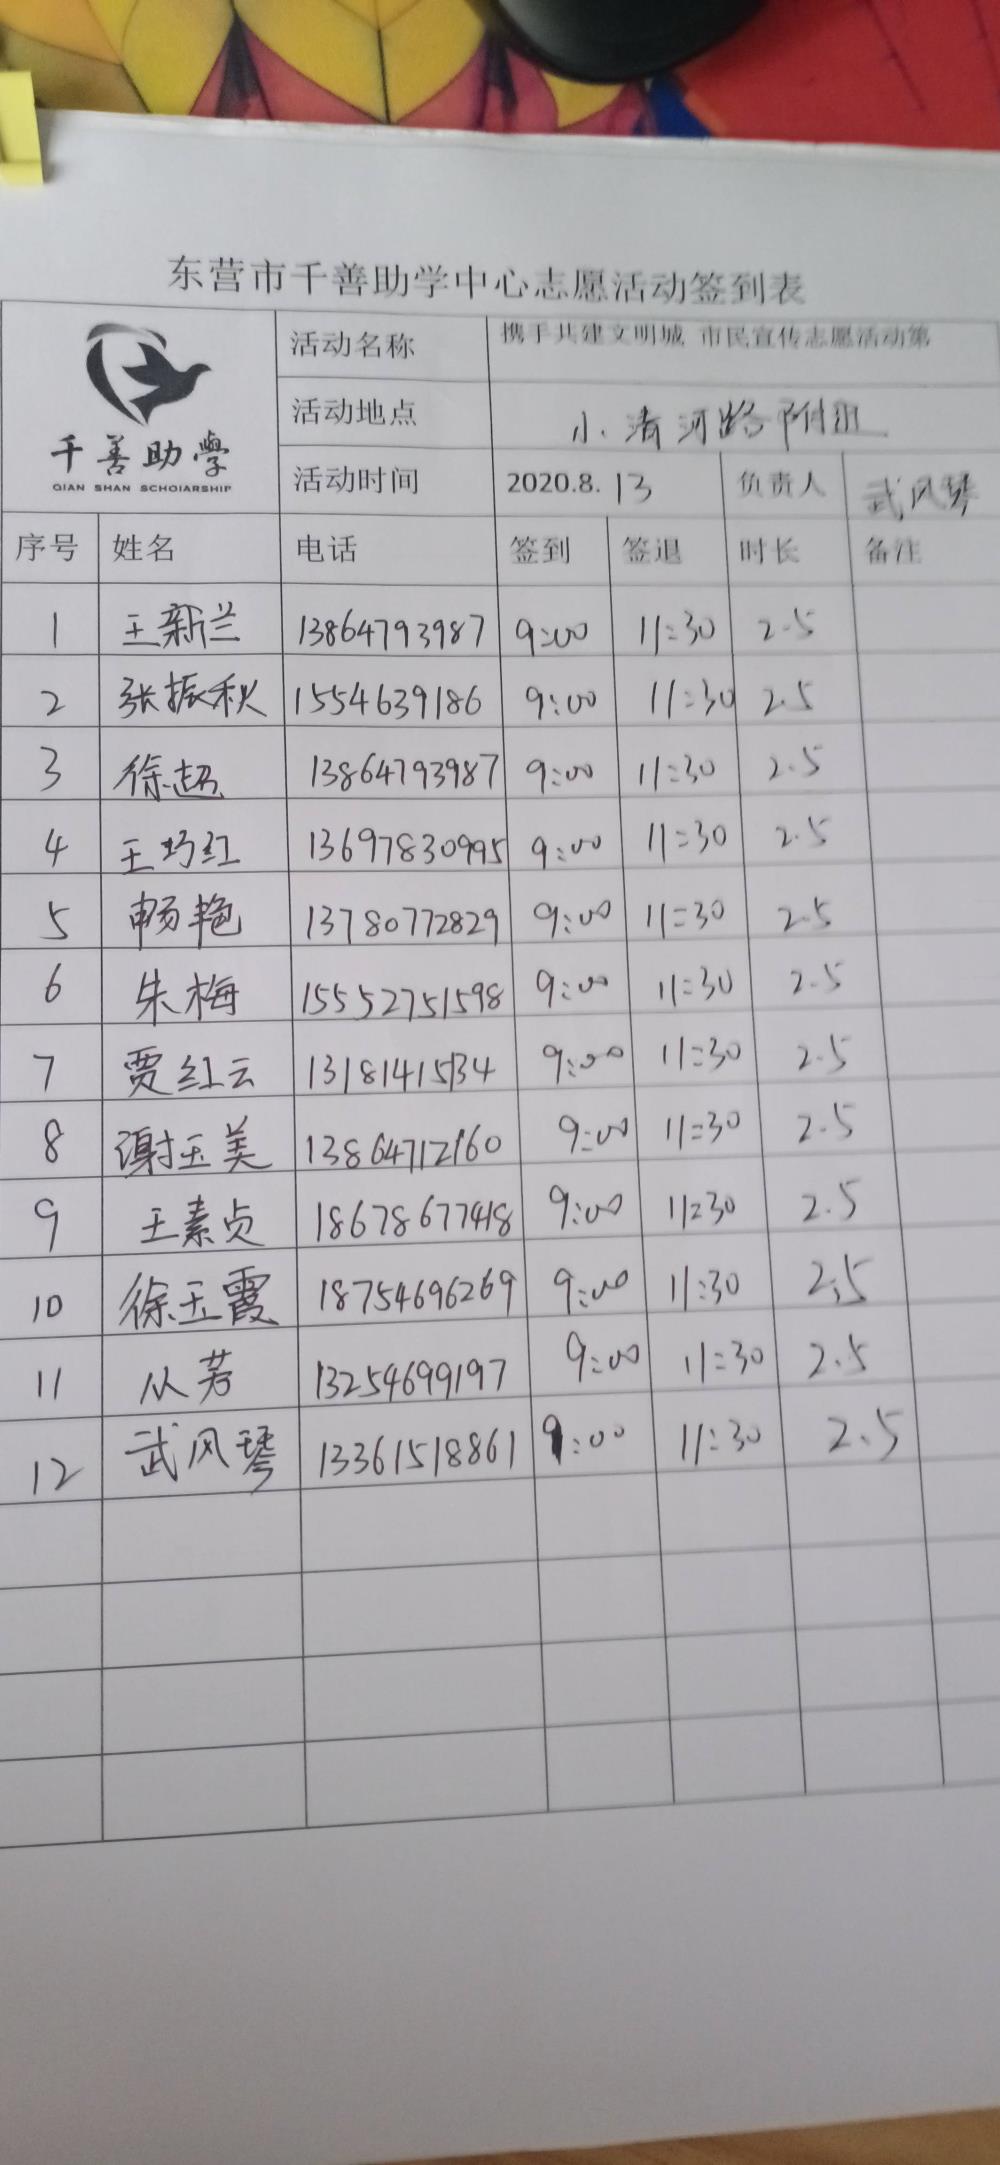 东营市千善助学中心志愿活动签到表
千善助學
QIAN SHAN SCHOIARSHIP
活动名称 携手共建文明城 市民宣传志愿活动第
活动地点 小清河路附近
活动时间 2020.8.13 负责人 武风琴
序号 姓名 电话 签到 签退 时长 备注
1 王新兰 13864793987 9:00 11:30 2.5
2 张振秋 1554639186 9:00 11:30 2.5
3 徐超 13864793987 9:00 11:30 2.5
4 王巧红 13697830995 9:00 11:30 2.5
5 畅艳 13780772829 9:00 11:30 2.5
6 朱梅 15552751598 9:00 11:30 2.5
7 贾红云 13181415134 9:00 11:30 2.5
8 谢玉美 13864712160 9:00 11:30 2.5
9 王素贞 18678677418 9:00 11:30 2.5
10 徐玉霞 18754696269 9:00 11:30 2.5
11 从芳 13254699197 9:00 11:30 2.5
12 武风琴 13361518861 9:00 11:30 2.5